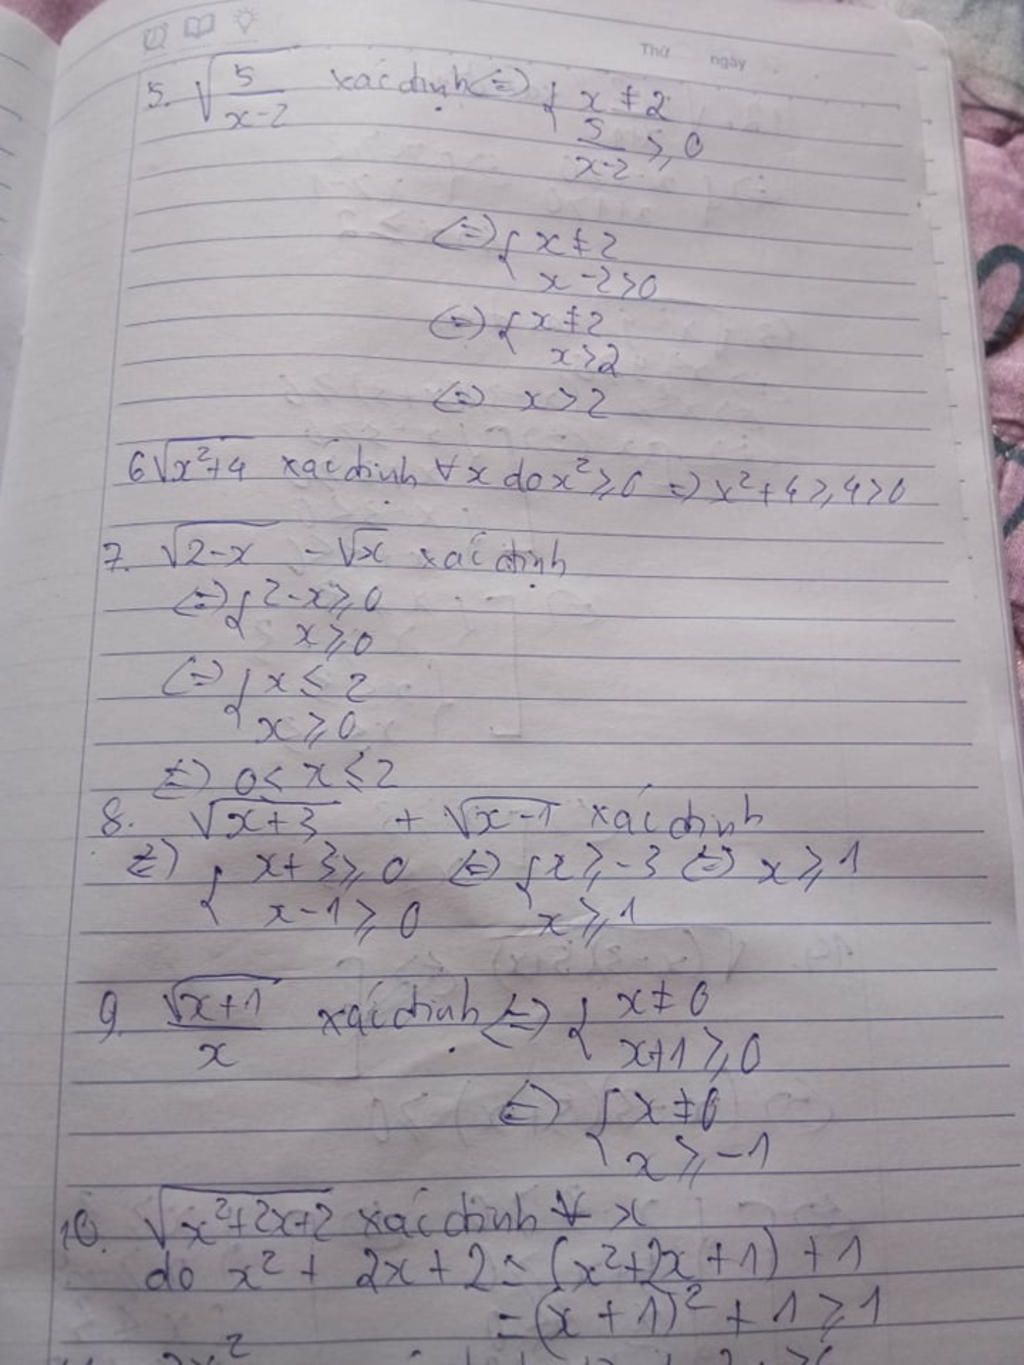 Thứ ngày
5. √(5/(x-2)) xác định (=) { x ≠ 2
5/(x-2) ≥ 0
(=) { x ≠ 2
x - 2 > 0
(=) { x ≠ 2
x > 2
(=) x > 2
6 √(x²+4) xác định ∀x do x² ≥ 0 => x² + 4 ≥ 4 > 0
7. √(2-x) - √x xác định
(=) { 2-x ≥ 0
x ≥ 0
(=) { x ≤ 2
x ≥ 0
(=) 0 ≤ x ≤ 2
8. √(x+3) + √(x-1) xác định
(=) { x+3 ≥ 0 (=) { x ≥ -3 (=) x ≥ 1
x-1 ≥ 0 x ≥ 1
9. √(x+1)/x xác định (=) { x ≠ 0
x+1 ≥ 0
(=) { x ≠ 0
x ≥ -1
10. √(x²+2x+2) xác định ∀ x
do x² + 2x + 2 = (x²+2x+1) + 1
= (x+1)² + 1 ≥ 1